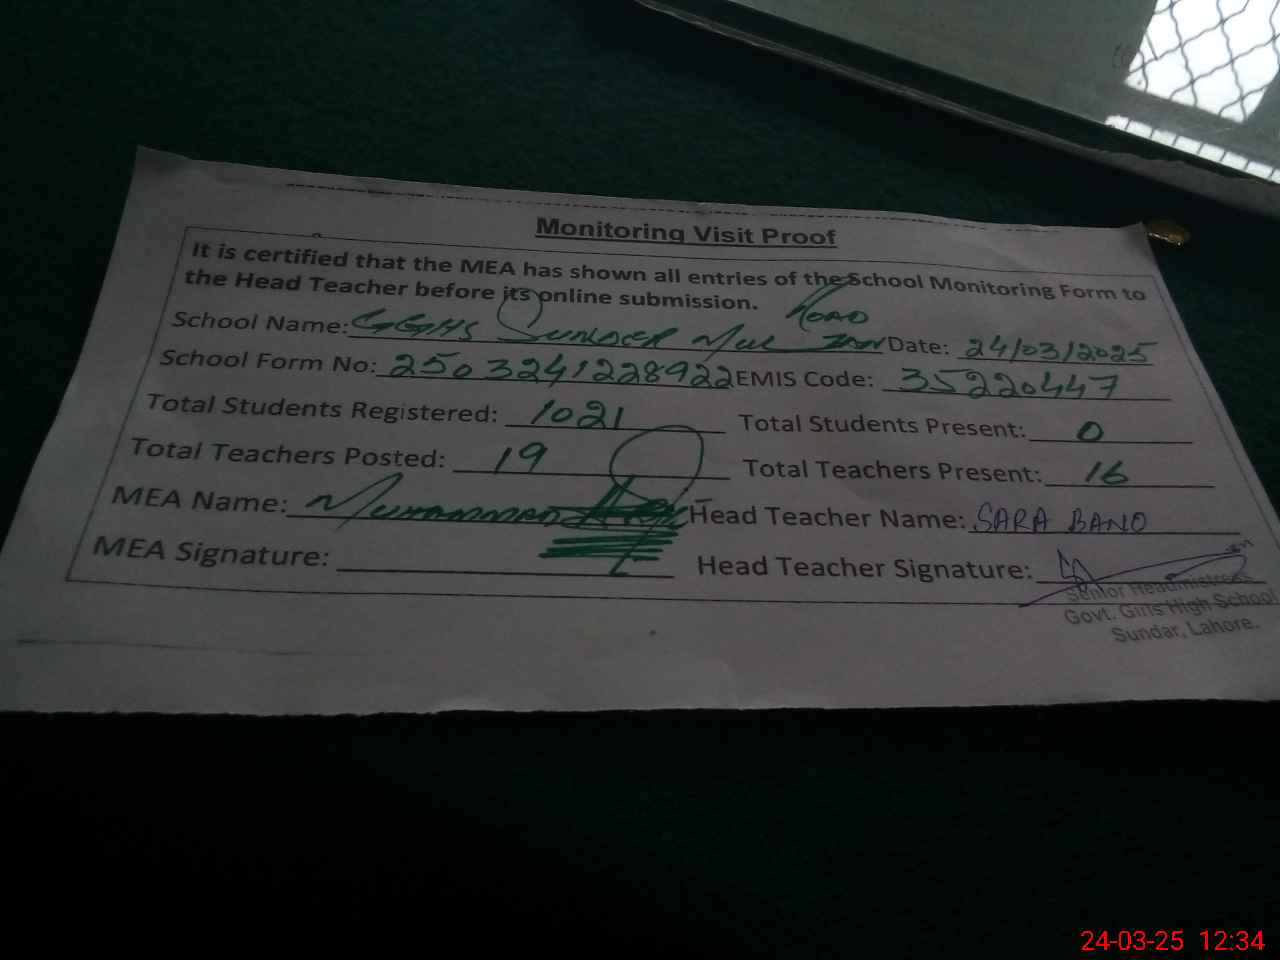 Monitoring Visit Proof
It is certified that the MEA has shown all entries of the School Monitoring Form to
the Head Teacher before its online submission.
School Name: GGHS SUNDER Road Date: 24/03/2025
School Form No: 2503241228922 EMIS Code: 35220447
Total Students Registered: 1021 Total Students Present: 0
Total Teachers Posted: 19 Total Teachers Present: 16
MEA Name: MUHAMMAD Head Teacher Name: SARA BANO
MEA Signature: Head Teacher Signature:
Senior Headmistress
Govt. Girls High School
Sundar, Lahore.
24-03-25 12:34